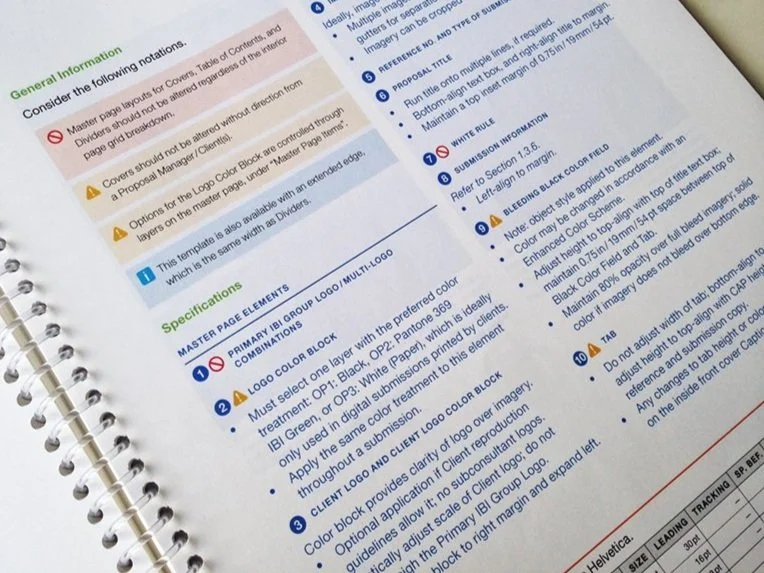 General Information
Consider the following notations.
Master page layouts for Covers, Table of Contents, and
Dividers should not be altered regardless of the interior
page grid breakdown.
Covers should not be altered without direction from
a Proposal Manager/Client(s).
Options for the Logo Color Block are controlled through
layers on the master page, under "Master Page Items".
This template is also available with an extended edge,
which is the same width as Dividers.
Specifications
MASTER PAGE ELEMENTS
1 PRIMARY IBI GROUP LOGO/MULTI-LOGO
COMBINATIONS
2 LOGO COLOR BLOCK
• Must select one layer with the preferred color
treatment: OP1: Black, OP2: Pantone 369
IBI Green, or OP3: White (Paper), which is ideally
only used in digital submissions printed by clients.
• Apply the same color treatment to this element
throughout a submission.
3 CLIENT LOGO AND CLIENT LOGO COLOR BLOCK
Color block provides clarity of logo over imagery.
• Optional application if Client reproduction
guidelines allow it; no subconsultant logos.
adjust scale of Client logo; do not
the Primary IBI Group Logo.
block to right margin and expand left.
4
Ideally,
• Multiple
gutters for
• Imagery can be cropped
5 REFERENCE NO. AND TYPE OF
6 PROPOSAL TITLE
• Run title onto multiple lines, if required.
• Bottom-align text box, and right-align title to margin.
• Maintain a top inset margin of 0.75in/19mm/54pt.
7 WHITE RULE
8 SUBMISSION INFORMATION
Refer to Section 1.3.6.
• Left-align to margin.
9 BLEEDING BLACK COLOR FIELD
• Note: object style applied to this element.
• Color may be changed in accordance with an
Enhanced Color Scheme.
• Adjust height to top-align with top of title text box;
maintain 0.75in/19mm/54pt space between top of
Black Color Field and Tab.
• Maintain 80% opacity over full bleed imagery; solid
color if imagery does not bleed over bottom edge.
10 TAB
• Do not adjust width of tab; bottom-align to
adjust height to top-align with CAP
reference and submission copy.
• Any changes to tab height or
on the inside front cover
Helvetica.
SIZE LEADING TRACKING SP. BEF.
30pt –
16pt –